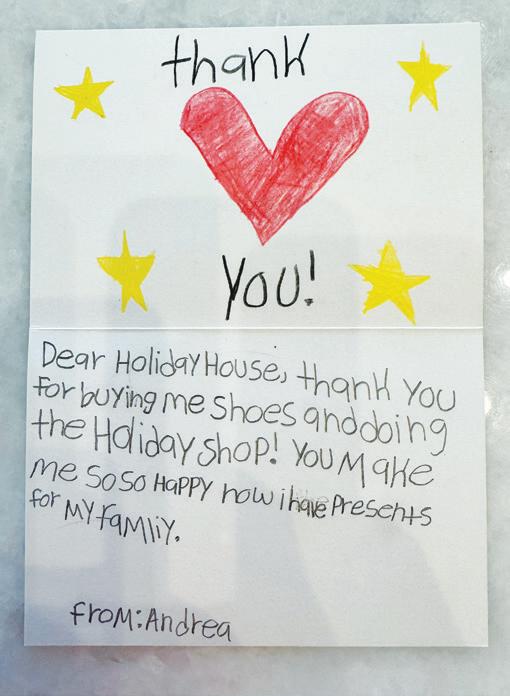 thank
you!
Dear HolidayHouse, thank you
for buying me shoes and doing
the Holiday shop! You Make
me so so HAPPY now i have Presents
for MY faMliy.
froM: Andrea